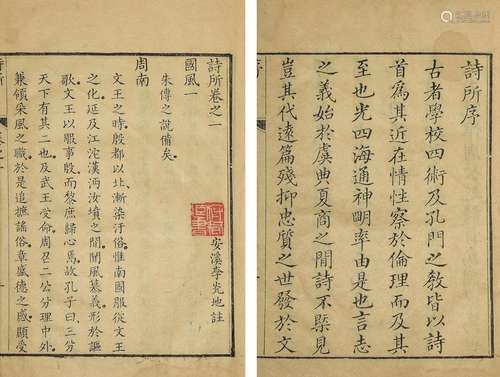 詩所序
古者學校四術及孔門之教皆以詩
首為其近在情性察於倫理而及其
至也光四海通神明率由是也言志
之義始於虞典夏商之閒詩不槩見
豈其代遠篇殘抑忠質之世發於文
詩所卷之一
安溪李光地註
國風一
朱傳之說備矣
周南
文王之時殷都以北漸染汙俗惟南國服從文王
之化延及江沱漢沔汝墳之閒聞風慕義形於謳
歌文王以服事殷而黎庶歸心焉故孔子曰三分
天下有其二也及武王受命周召二公分理中外
兼領采風之職於是追摭謠俗章盛德之感顯受